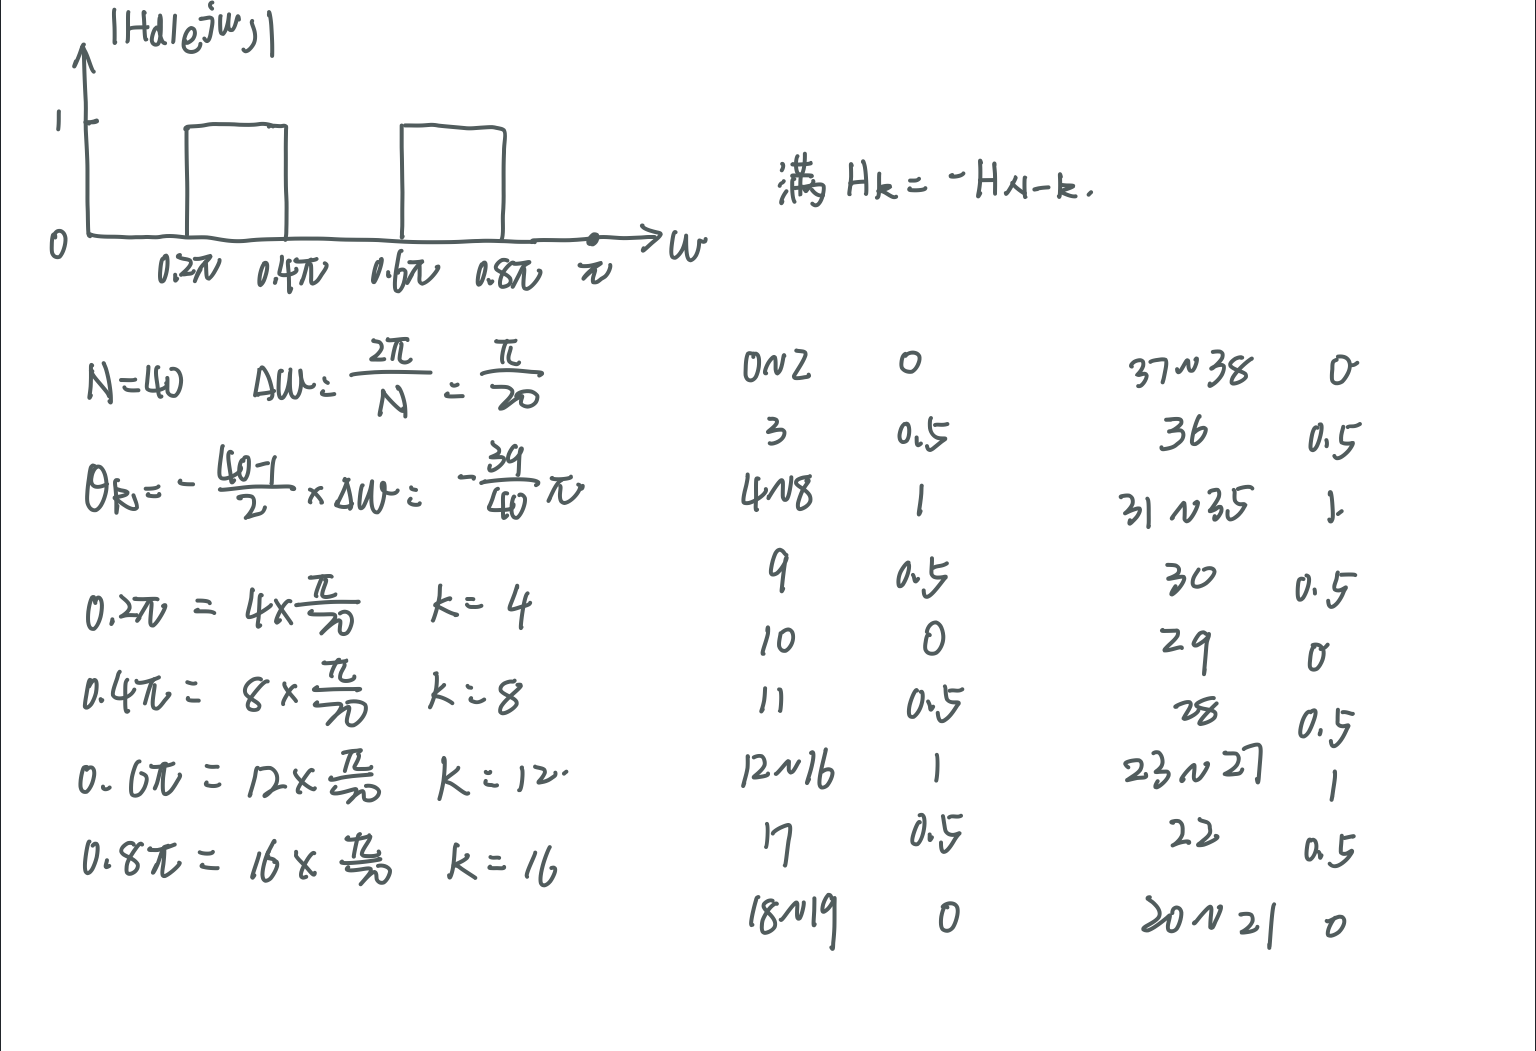 |Hd(e^jw)|
1
0
0.2π 0.4π 0.6π 0.8π π w
满 Hk = -HN-k.
N=40 Δw = 2π/N = π/20
θk = - (40-1)/2 × Δw = - 39/40 π
0.2π = 4×π/20 k = 4
0.4π = 8×π/20 k = 8
0.6π = 12×π/20 k = 12.
0.8π = 16×π/20 k = 16
0~2 0 37~38 0
3 0.5 36 0.5
4~8 1 31~35 1.
9 0.5 30 0.5
10 0 29 0
11 0.5 28 0.5
12~16 1 23~27 1
17 0.5 22 0.5
18~19 0 20~21 0